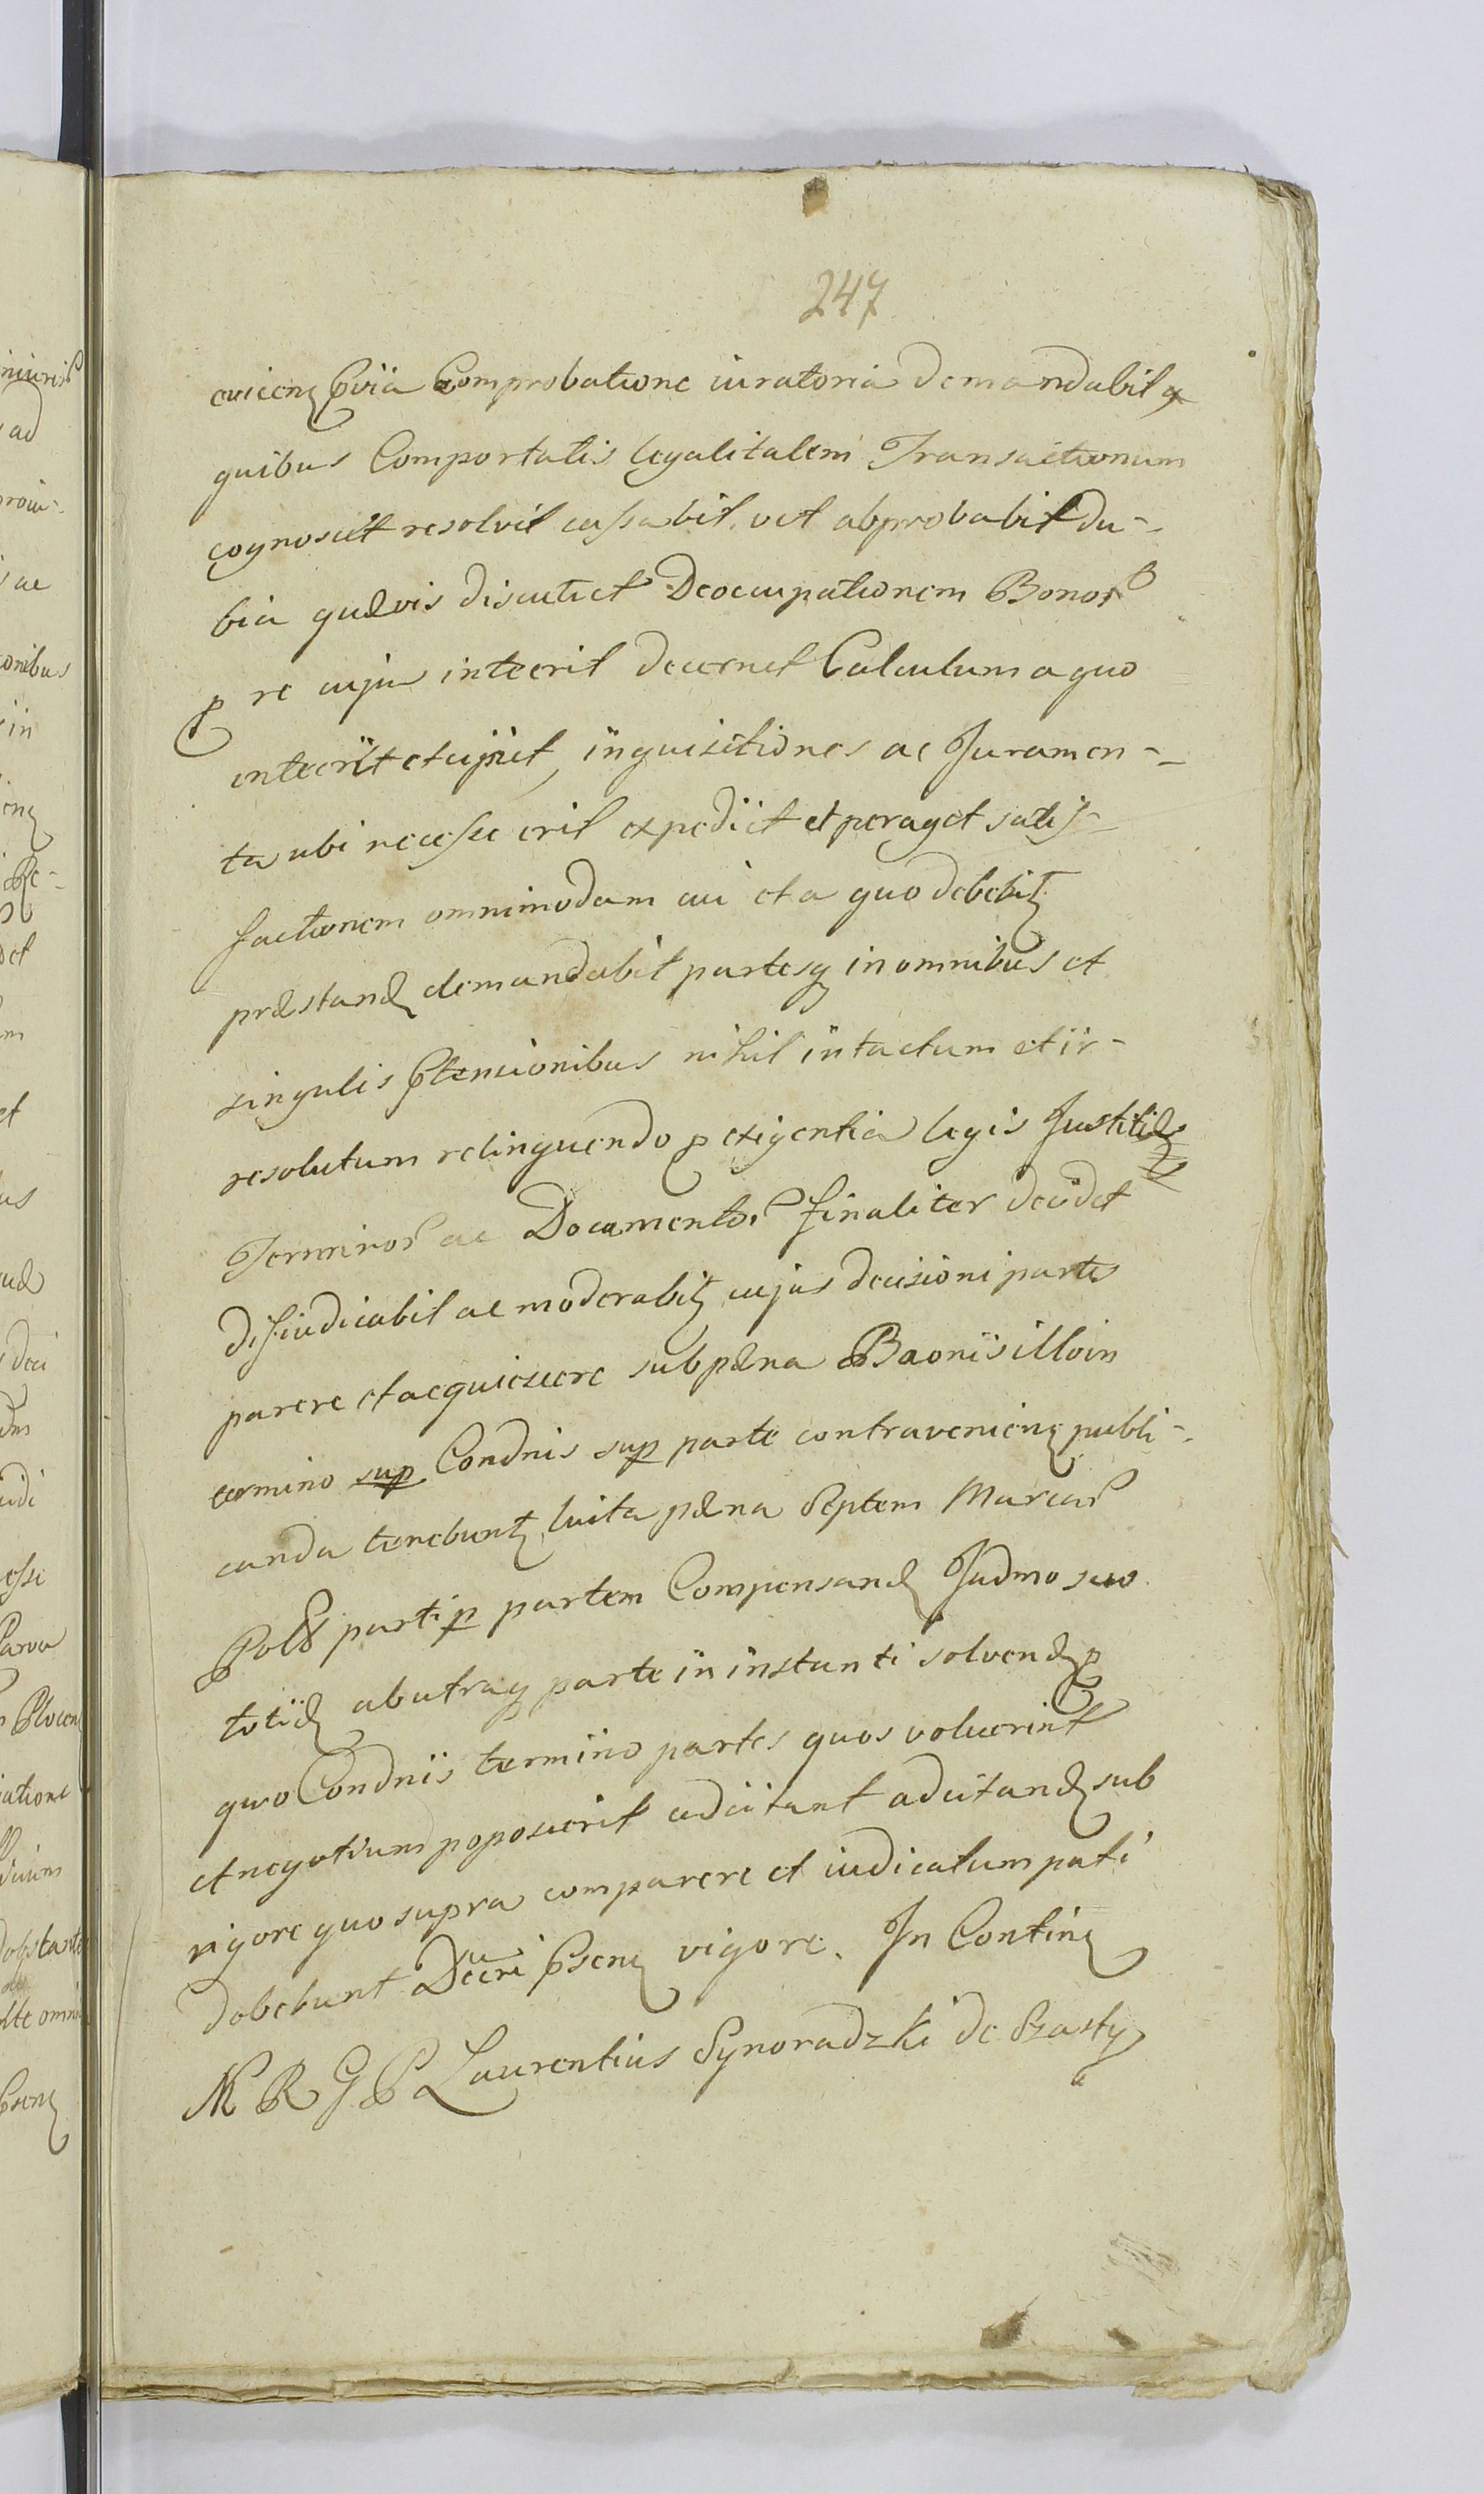 247
evicen pvia Comprobatione iuratoria demandabit q
quibus Comportatis legalitatem Transactionum
cognoscet resolvet cassabit vel abprobabit du-
bia quævis discutiet Deoccupationem Bonor
p re cujus intererit decernet Calculum a quo
intererit et cujus, inquisitiones ac Juramen-
ta ubi necesse erit expediet et peraget satis-
factionem omnimodam cui et a quo debebit
præstand demandabit partesq in omnibus et
singulis ptensionibus nihil intactum et ir-
resolutum relinquendo p exigentia legis Justitiæ
Terminor ac Documentor finaliter decidet
disiudicabit ac moderabit cujus decisioni partes
parere et acquiescere sub pæna Baonis illo in
termino sup Condnis sup parte contravenien publi-
canda tenebunt luita pæna Septem Marcar
Pol parti p partem Compensand Judmo suo
totid ab utraq parte in instanti solvend p
quo Condnis termino partes quos voluerint
et negotium poposcerit adcitant adcitand sub
rigore quo supra comparere et iudicatum pati
debebunt Decri psen vigore. In Contin
M R G P Laurentius Synoradzki de Szasty